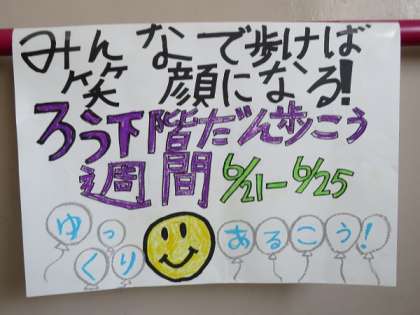 みんなで歩けば
笑顔になる!
ろう下階だん歩こう
週間 6/21-6/25
ゆっくり あるこう!